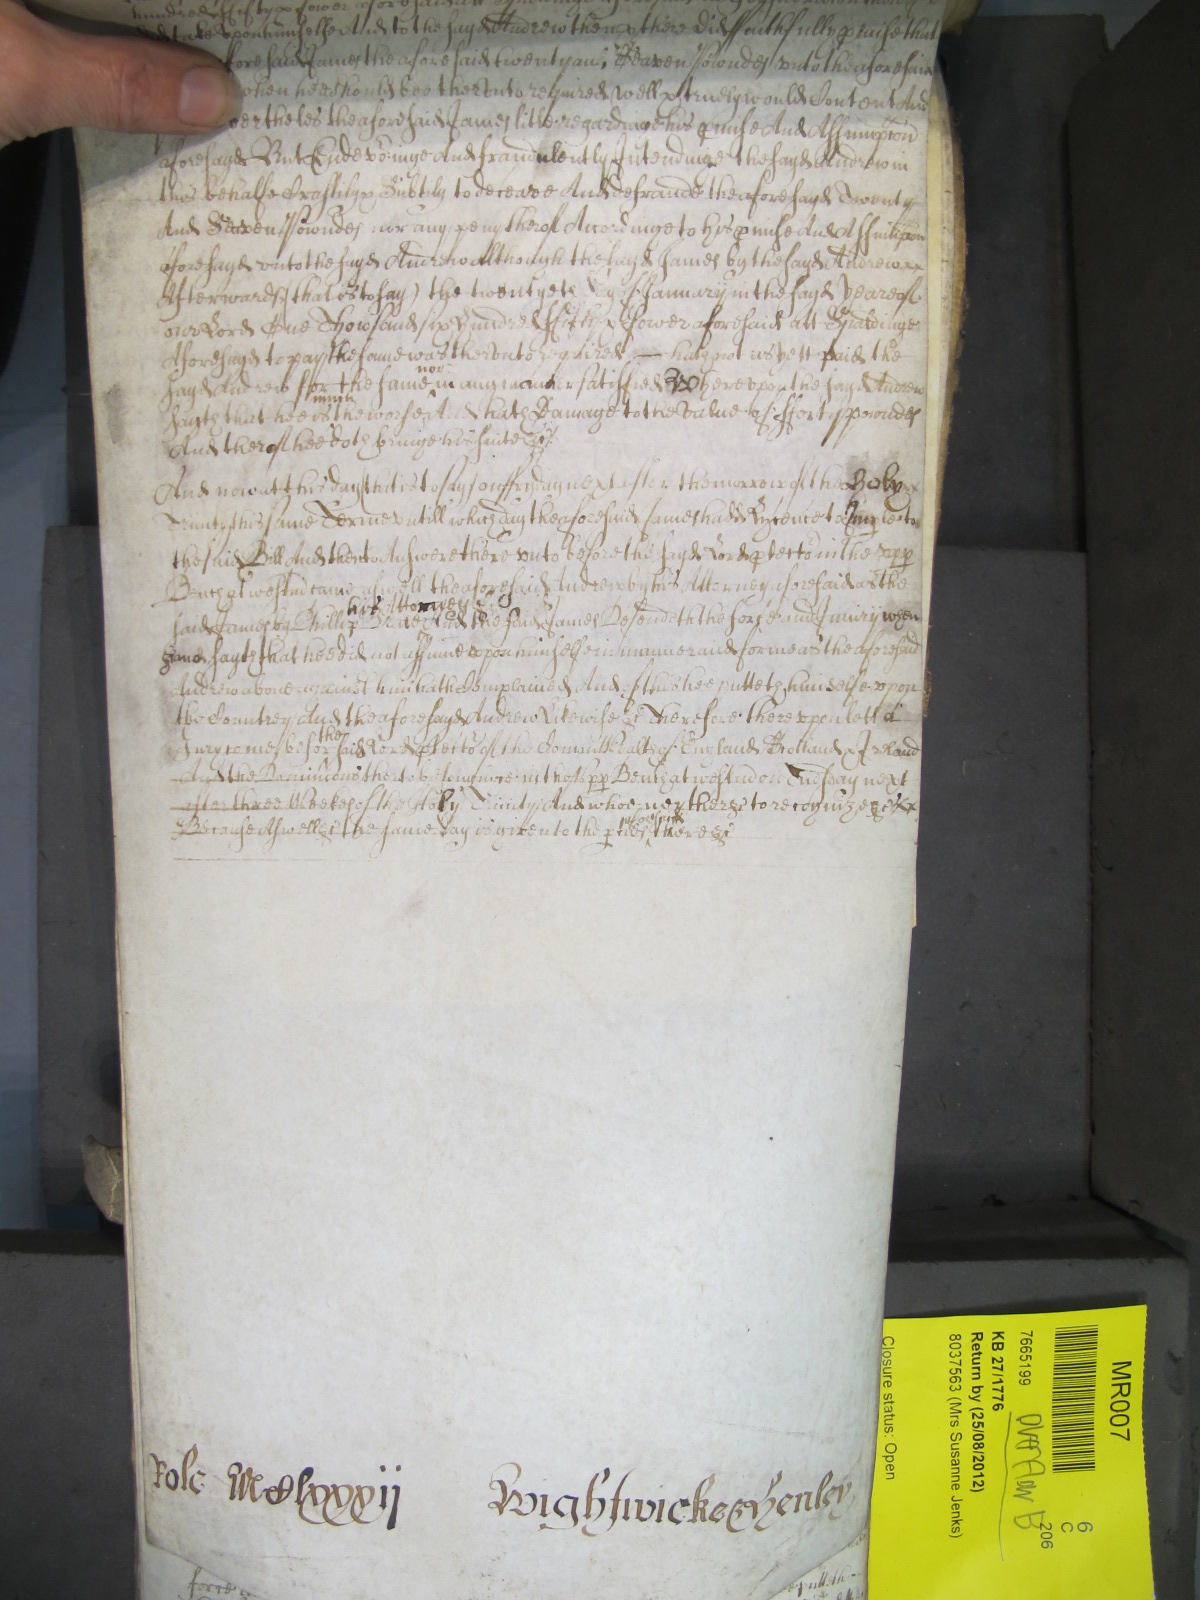 hundred ffifty & fower aforesaid att
undertake upon himselfe And to the sayd Andrew then & there did ffaithfully pmise that
aforesaid James the aforesaid twenty and Seaven Powndes unto the aforesaid
when hee should bee thereunto required well & truely would Content And
Neverthelesse the aforesaid James litle regardinge his pmise And Assumpcon
aforesayd But Endevoringe And fraudulently Intendinge the sayd Andrew in
this behalfe Craftily & Subtily to deceave And defraude the aforesayd Twenty
And Seaven Powndes nor any peny therof Accordinge to his pmise And Assumpcon
aforesayd unto the sayd Andrew Although the sayd James by the sayd Andrew
Afterwards (that is to say) the twentyeth day of January in the sayd Yeare of
our Lord One Thowsand six hundred ffifty & ffower aforesaid att Spaldinge
Aforesayd to pay the same was thereunto required — hath not as yett paid the
sayd Andrew for the same nor in any manner satisfied Whereupon the sayd Andrew
sayth that hee is much the worse And hath Damage to the value of fforty powndes
And therof hee doth bringe his suite &c
And now att this day that is to say on ffryday next after the morrow of the Holy
Trinity this same Terme untill which day the aforesaid James hadd Lycence to Imparle to
the said Bill And then to Answere there unto before the sayd Lord ptector in the upp
Bench at westmr came aswell the aforesaid Andrew by his Attorney aforesaid as the
said James by Phillip his Attorney And the said James Defendeth the force and Iniury when
&c And sayth that hee did not assume upon himselfe in manner and forme as the aforesaid
Andrew above against him hath Complained And of this hee putteth himselfe upon
the Countrey And the aforesayd Andrew Likewise &c Therefore thereupon lett a
Jury come before the said Lord ptector of the Comonwealth of England Scotland & Ireland
And the Dominions therto belonginge in the upp Bench at westmr on Tuesday next
after three Weekes of the Holy Trinity And who neyther &c to recognize &c
Because Aswell &c the same day is given to the pties there &c
Rolc Mlxxxij Wightwicke & Henley
MR007
7665199
KB 27/1776
Return by (25/08/2012)
8037563 (Mrs Susanne Jenks)
Closure status: Open
OVERFLOW B
6
C
206